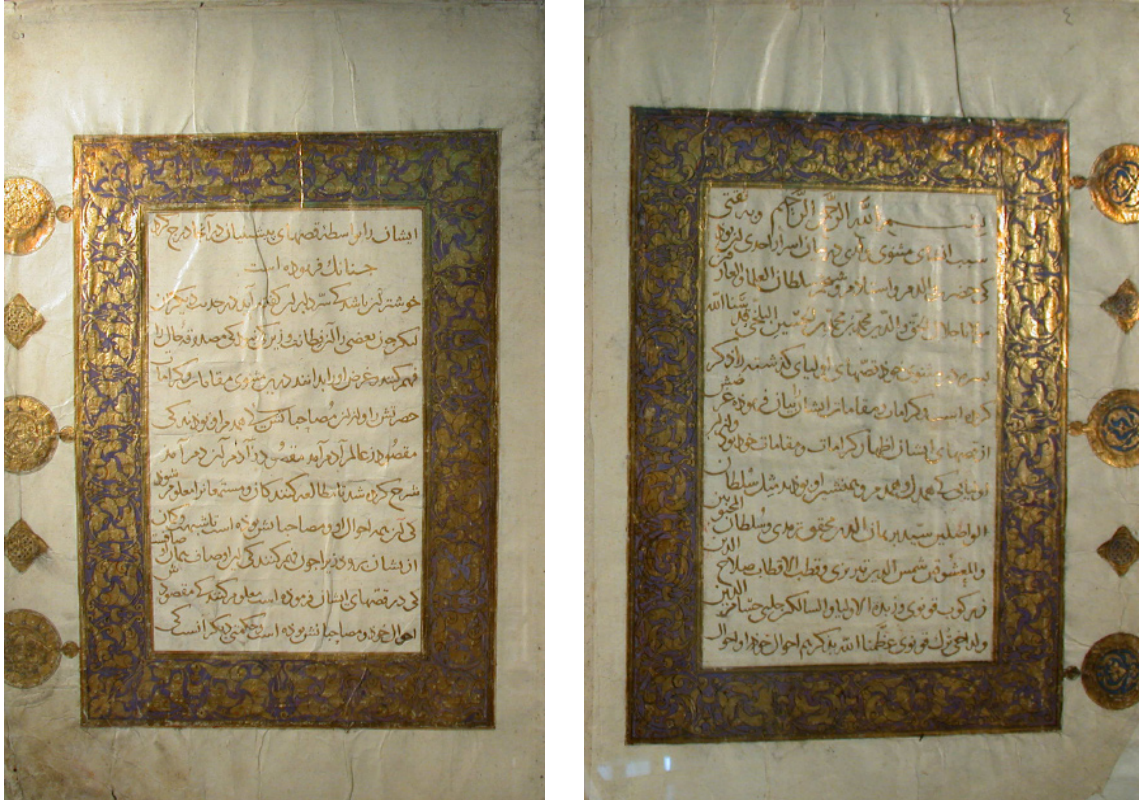 بسم الله الرحمن الرحیم وبه ثقتی
سبب انشای مثنوی ولدی در بیان اسرار احدی آن بود
کی حضرت والدم و استادم و شیخم سلطان العلما و العارفین
مولانا جلال الحق و الدین محمد بن محمد بن الحسین البلخی قدسنا الله
بسره در مثنوی خود قصهای اولیای گذشته را ذکر
کرده است و کرامات و مقامات ایشان را بیان فرموده غرضش
از قصهای ایشان اظهار کرامات و مقامات خود بود و از آن
اولیایی که همدل و همدم و همنشین او بودند مثل سلطان
الواصلین سید برهان الدین محقق ترمدی و سلطان المحبوبین
والمعشوقین شمس الدین تبریزی و قطب الاقطاب صلاح الدین
زرکوب قونوی و زبدة الاولیا و السالکین چلبی حسام الدین
ولد اخی ترک قونوی عظمنا الله بذکرهم احوال خود و احوال
ایشان را بواسطهٔ قصهای پیشینیان در آنجا درج کرد
چنانک فرموده است
خوشتر آن باشد که سر دلبران گفته آید در حدیث دیگران
لیکن چون بعضی را آن فطانت و زیرکی نبود کی مصدوقهٔ حال را
فهم کنند و غرض او را بدانند درین مثنوی مقامات و کرامات
حضرتش را و از آن مصاحبان کی همدم او بودند کی
مقصود ز عالم آدم آمد مقصود ز آدم آن دم آمد
شرح کرده شد تا مطالعه کنندگان و مستمعان را معلوم شود
کی آن همه احوال او و مصاحبانش بوده است تا شبهه و گمان
از ایشان برود زیرا چون فهم کنند کی این اوصاف ایشان
کی در قصهای ایشان فرموده است معلوم کنند که مقصود
احوال خود و مصاحبانش بوده است و حکمتی دیگر آنست کی